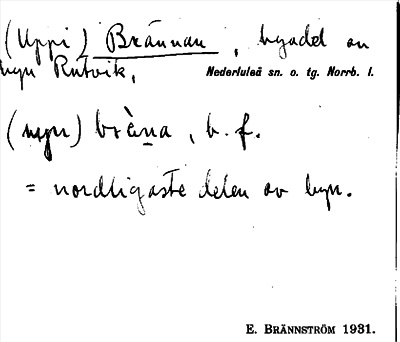 (Uppi) Brännan, byadel av
byn Rutvik,
Nederluleå sn. o. tg. Norrb. l.
(uɲɲ) brὲn̠a, b. f.
= nordligaste delen av byn.
E. BRÄNNSTRÖM 1931.